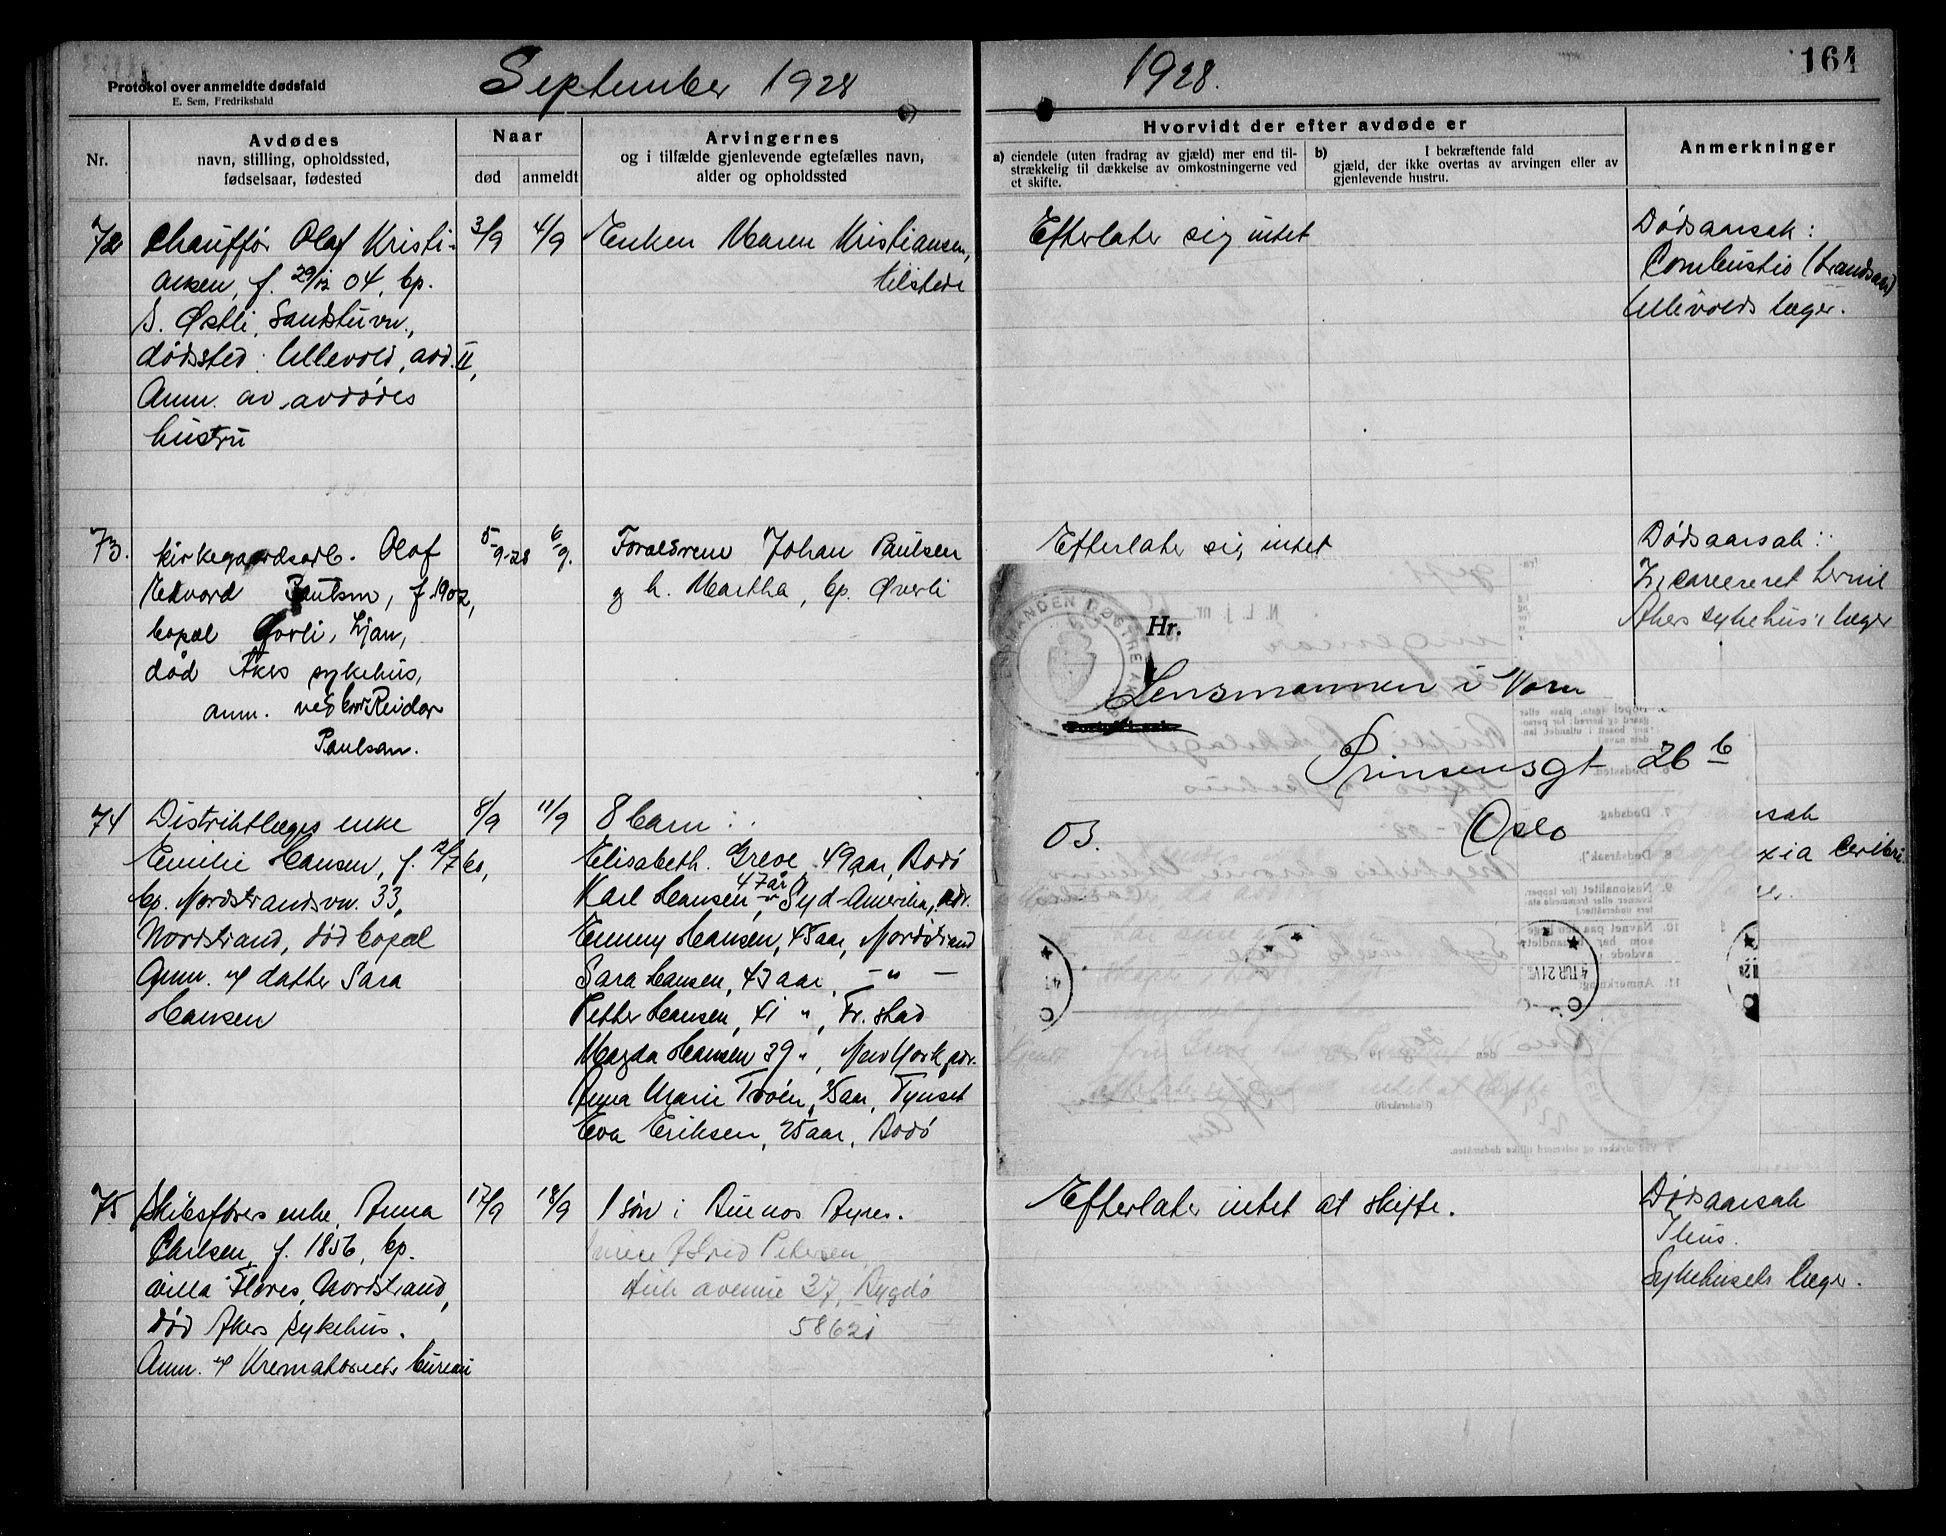 Protokol over anmeldte dødsfald
E. Sem, Fredrikshald
September 1928
1928.
164
Nr.
Avdødes
navn, stilling, opholdssted,
fødselsaar, fødested
Naar
død
anmeldt
Arvingernes
og i tilfælde gjenlevende egtefælles navn,
alder og opholdssted
Hvorvidt der efter avdøde er
a) eiendele (uten fradrag av gjæld) mer end til-
strækkelig til dækkelse av omkostningerne ved
et skifte.
b) I bekræftende fald
gjæld, der ikke overtas av arvingen eller av
gjenlevende hustru.
Anmerkninger
72
Chauffør Olaf Kristi-
ansen, f. 29/12 04, bp.
S. Østli, Sandstuvn.,
dødsted: Ullevold, avd. II,
Anm. av avdødes
hustru
3/9
4/9
Enken Maren Kristiansen,
tilstede
Efterlater sig intet
Dødsaarsak:
Combustio (brandsaar)
Ullevolds læger.
73.
Kirkegaardsarb. Olaf
Edvard Paulsen, f. 1902,
bopæl Øverli, Ljan,
død Akers sykehus,
anm. ved bror Reidar
Paulsen.
5/9-28
6/9.
Forældrene Johan Paulsen
og h. Martha, bp. Øverli
Efterlater sig intet
Dødsaarsak:
Incarcereret
Akers sykehus' læger
Hr.
Lensmannen i
Prinsensgt 26 b
Oslo
03.
74
Distriktlæges enke
Emilie Hansen, f. 12/7 60,
bp. Nordstrandsvn. 33,
Nordstrand, død bopæl
Anm. af datter Sara
Hansen
8/9
11/9
8 barn:
Elisabeth Greve, 49 aar, Bodø
Karl Hansen, 47 år, Syd-Amerika, adr.
Emmy Hansen, 45 aar, Nordstrand
Sara Hansen, 43 aar, - " -
Petter Hansen, 41 ", Fr.stad
Magda Hansen 39 ", New York, adr.
Anna Marie Trøen, 35 aar, Tynset
Eva Eriksen, 25 aar, Bodø
75
Skibsførers enke, Anna
Carlsen, f. 1856, bp.
villa Flores, Nordstrand,
død Akers sykehus.
Anm. af Krematoriets bureau
17/9
18/9
1 søn i Buenos Ayres.
niece Astrid Petersen,
avenue 37, Bygdø
58621
Efterlater intet at skifte.
Dødsaarsak
Ileus.
Sykehusets læger.